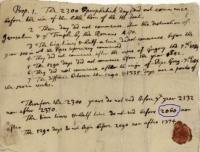 Prop. 1. The 2300 prophetick days did not commence before the rise of the little horn of the He Goat.
2 Those day did not commence after the destruction of Jerusalem & the Temple by the Romans A. 70.
3 The time times & half a time did not commence before the year 800 in
4 They did not commence after the
5 The 1290 days did not commence before the year 842.
6 They did not commence after the reigne of Pope Greg. 7th
7 The difference between the 1290 & 1335 days are a parts of the seven weeks.
Therefore the 2300 years do not end before ye year 2132 nor after 2370.
The time times & half time do not end before 2060 nor after
The 1290 days do not begin before 2090 nor after 1374